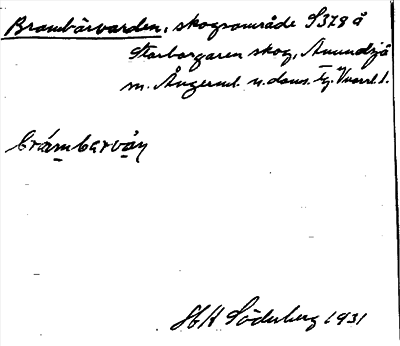 Brambärvarden, skogsområde S 378 å
Storborgaren skog, Anundsjö
m. Ångerml. n. doms. Ej. Vbarrl. 1.
brámbarván
HH Söderberg 1931